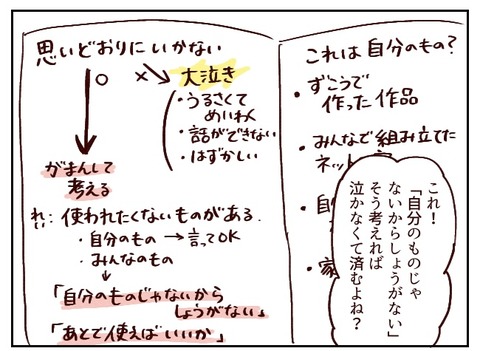 思いどおりにいかない
○
×
大泣き
・うるさくて
めいわく
・話ができない
・はずかしい
がまんして
考える
れい：使われたくないものがある.
・自分のもの→言ってOK
・みんなのもの
「自分のものじゃないから
しょうがない」
「あとで使えばいいか」
これは自分のもの？
・ずこうで
作った作品
・みんなで組み立てた
ネット
・自
・家
これ！
「自分のものじゃ
ないからしょうがない」
そう考えれば
泣かなくて済むよね？